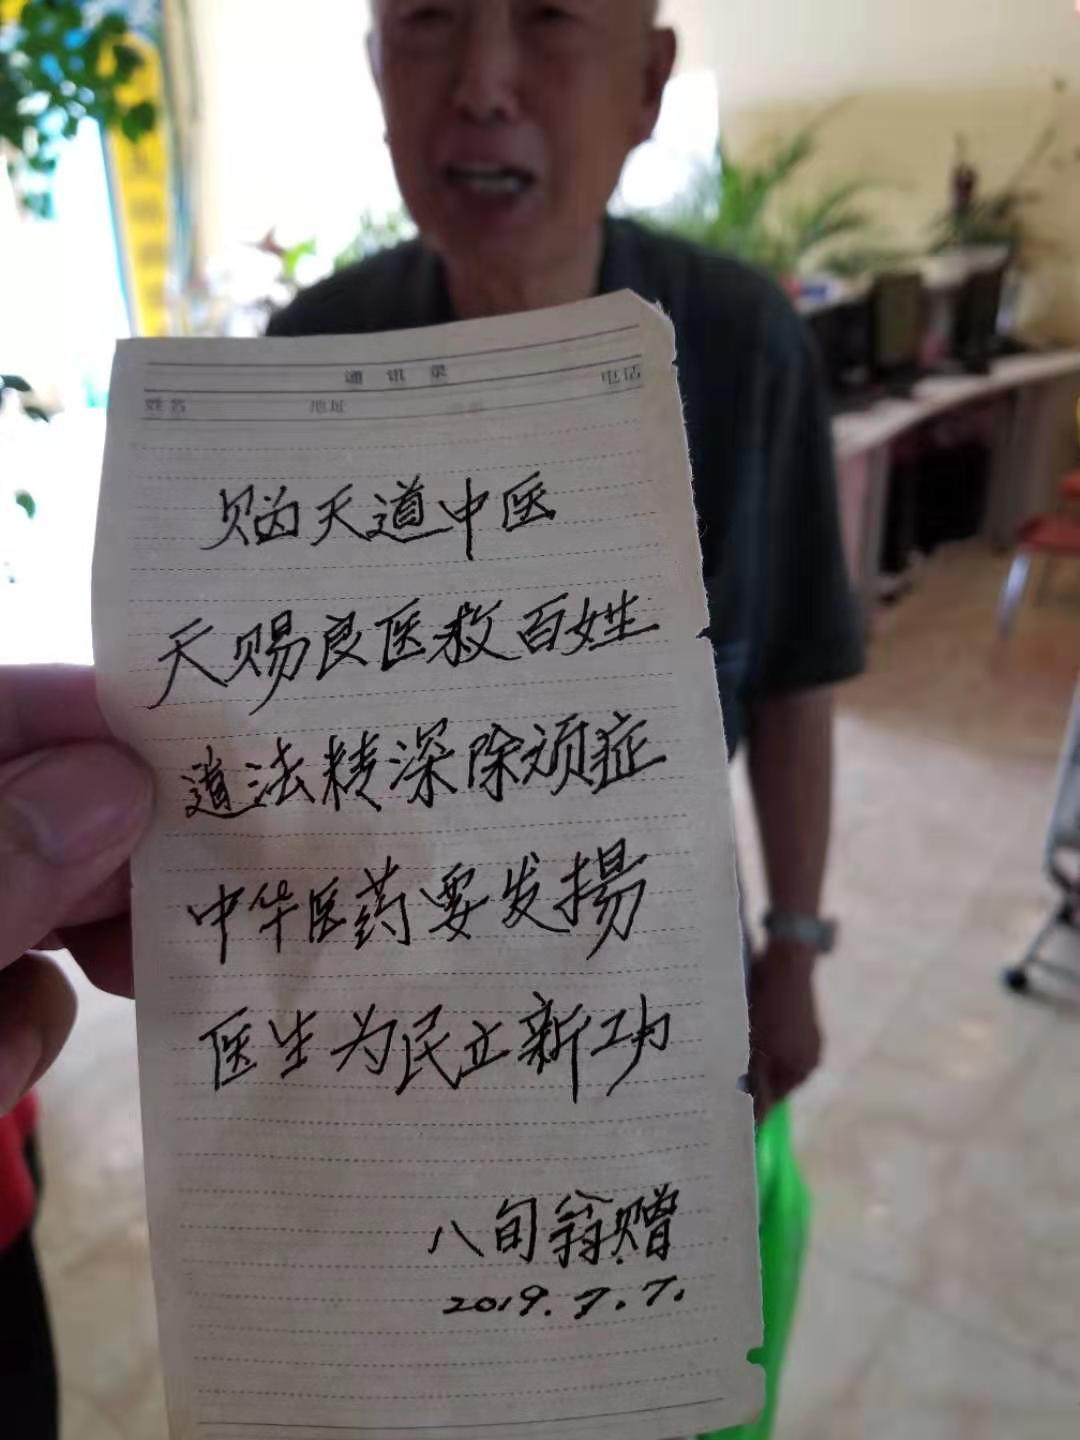 通讯录
姓名 地址 电话
天道中医
天赐良医救百姓
道法精深除顽症
中华医药要发揚
医生为民立新功
八旬翁赠
2019.7.7.